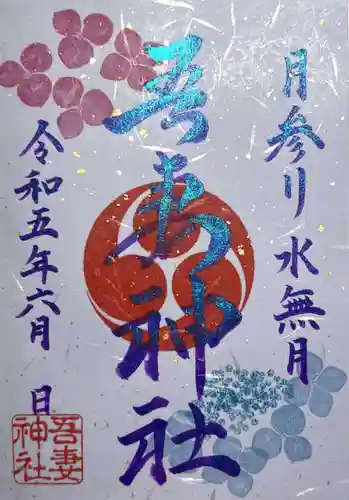 月参り水無月
吾妻神社
令和五年六月 日
吾妻
神社